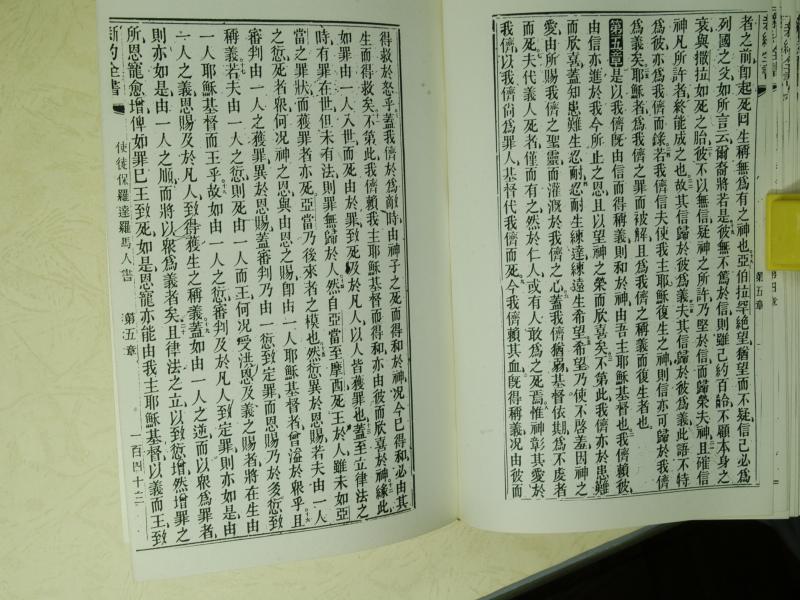 者之前卽起死回生稱無爲有之神也亞伯拉罕絶望猶望而不疑信己必爲
列國之父如所言云爾裔將若是彼無不篤於信則雖己約百齡不顧本身之
衰與撒拉如死之胎彼不以無信疑神之所許乃堅於信而歸榮夫神且確信
神凡所許者終能成之也故其信歸於彼爲義夫其信歸於彼爲義此語不特
爲彼亦爲我儕而錄若我儕信夫使我主耶穌復生之神則信亦可歸於我儕
爲義矣耶穌者爲我儕之罪而被解且爲我儕之稱義而復生者也
第五章是以我儕旣由信而得稱義則和於神由吾主耶穌基督也我儕賴彼
由信亦進於我今所止之恩且以望神之榮而欣喜矣不第此我儕亦於患難
而欣喜蓋知患難生忍耐忍耐生練達練達生希望希望乃使不啓羞因神之
愛由所賜我儕之聖靈而灌漑於我儕之心蓋我儕猶弱基督依期爲不虔者
而死夫代義人死者僅而有之然於仁人或有人敢爲之死焉惟神彰其愛於
我儕以我儕尙爲罪人基督代我儕而死今我儕賴其血旣得稱義况由彼而
第五章
得救於怒乎蓋我儕於爲敵時由神子之死而得和於神况今已得和必由其
生而得救矣不第此我儕賴我主耶穌基督而得和亦由彼而欣喜於神緣此
如罪由一人入世而死由於罪致死及於凡人以人皆獲罪也蓋至立律法之
時有罪在世但未有法則罪無歸於人然自亞當至摩西死王於人雖未如亞
當之罪狀而獲罪者亦死亞當乃後來者之模也然愆異於恩賜若夫由一人
之愆死者衆何况神之恩與由恩之賜卽由一人耶穌基督者曾溢於衆乎且
審判由一人之獲罪異於恩賜蓋審判乃由一愆致定罪而恩賜乃於多愆致
稱義若夫由一人之愆則死由一人而王何况受洪恩及義之賜者將在生由
一人耶穌基督而王乎故如由一人之愆審判及於凡人致定罪則亦如是由
一人之義恩賜及於凡人致得獲生之稱義蓋如由一人之逆而以衆爲罪者
則亦如是由一人之順而將以衆爲義者矣且律法之立以致愆增然增罪之
所恩寵愈增俾如罪已王致死如是恩寵亦能由我主耶穌基督以義而王致
新約全書
使徒保羅達羅馬人書
第五章
一百四十三